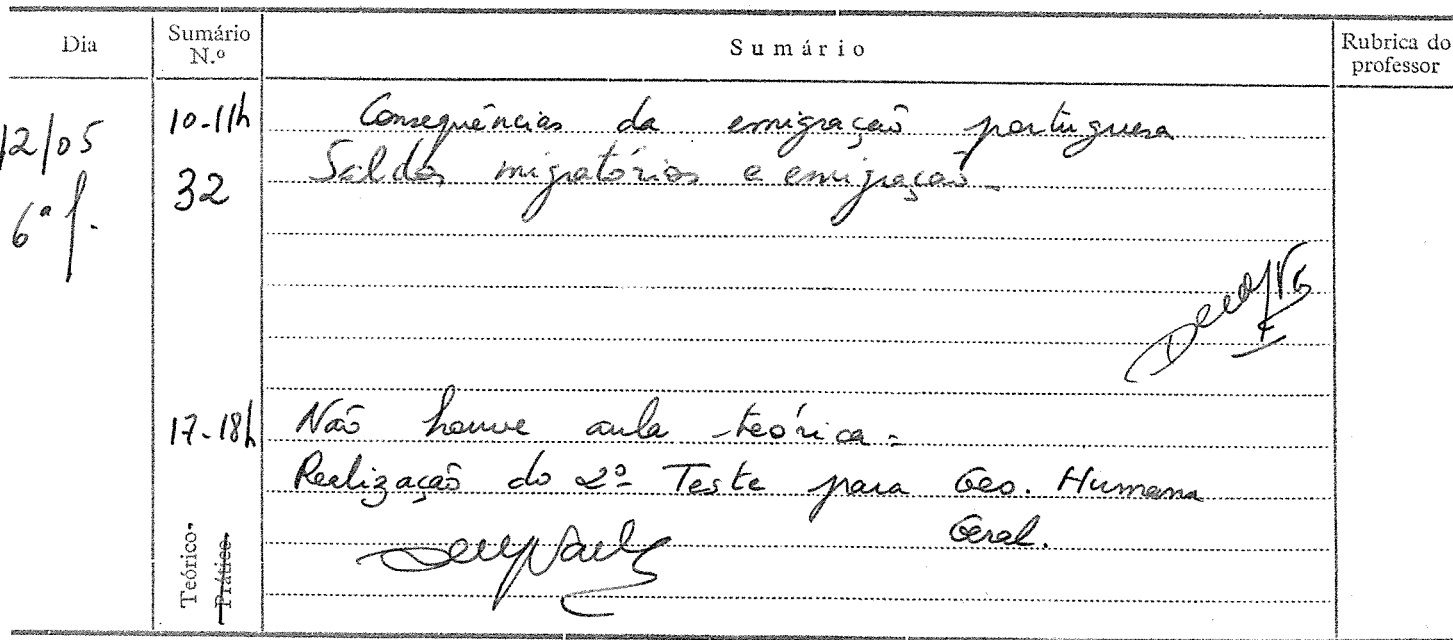 Dia
Sumário N.º
Sumário
Rubrica do professor
12/05
6ª f.
10-11h
32
Consequências da emigração portuguesa
Saldos migratórios e emigração.
17-18h
Não houve aula teórica.
Realização do 2º Teste para Geo. Humana
Geral.
Teórico-
Prático-